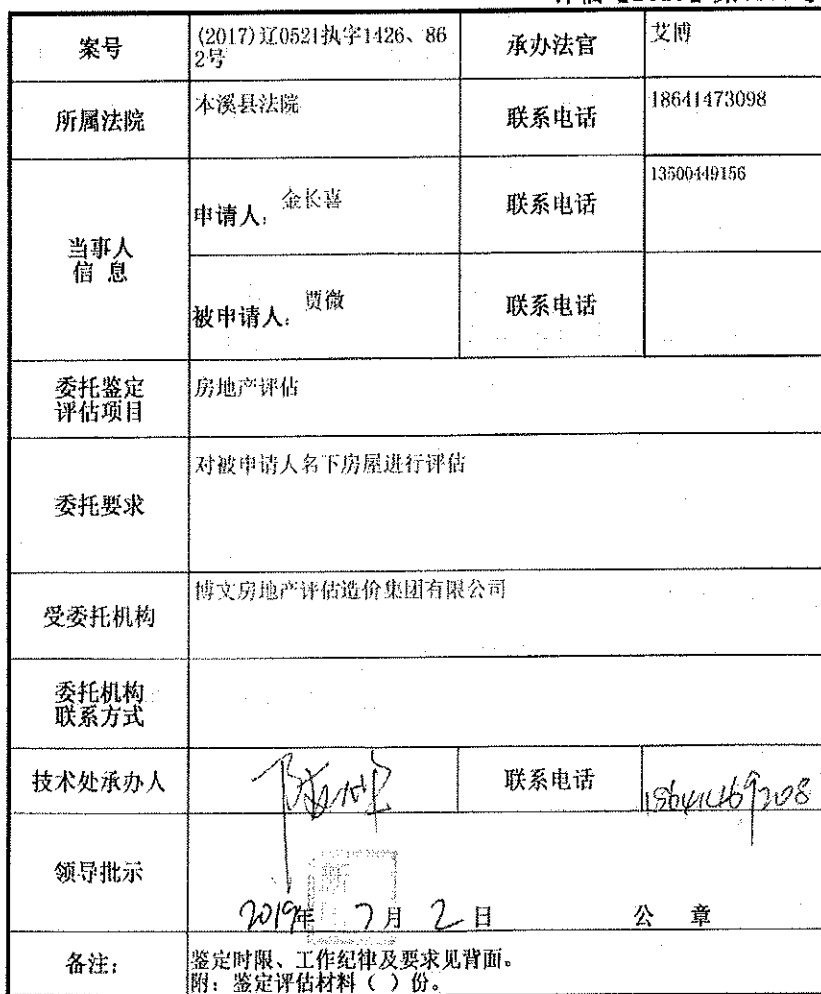 案号
(2017)辽0521执字1426、86
2号
承办法官
艾博
所属法院
本溪县法院
联系电话
18641473098
当事人
信 息
申请人: 金长喜
联系电话
13500449156
被申请人: 贾微
联系电话
委托鉴定
评估项目
房地产评估
委托要求
对被申请人名下房屋进行评估
受委托机构
博文房地产评估造价集团有限公司
委托机构
联系方式
技术处承办人
联系电话
领导批示
2019年 7月 2日
公 章
备注:
鉴定时限、工作纪律及要求见背面。
附: 鉴定评估材料（ ）份。